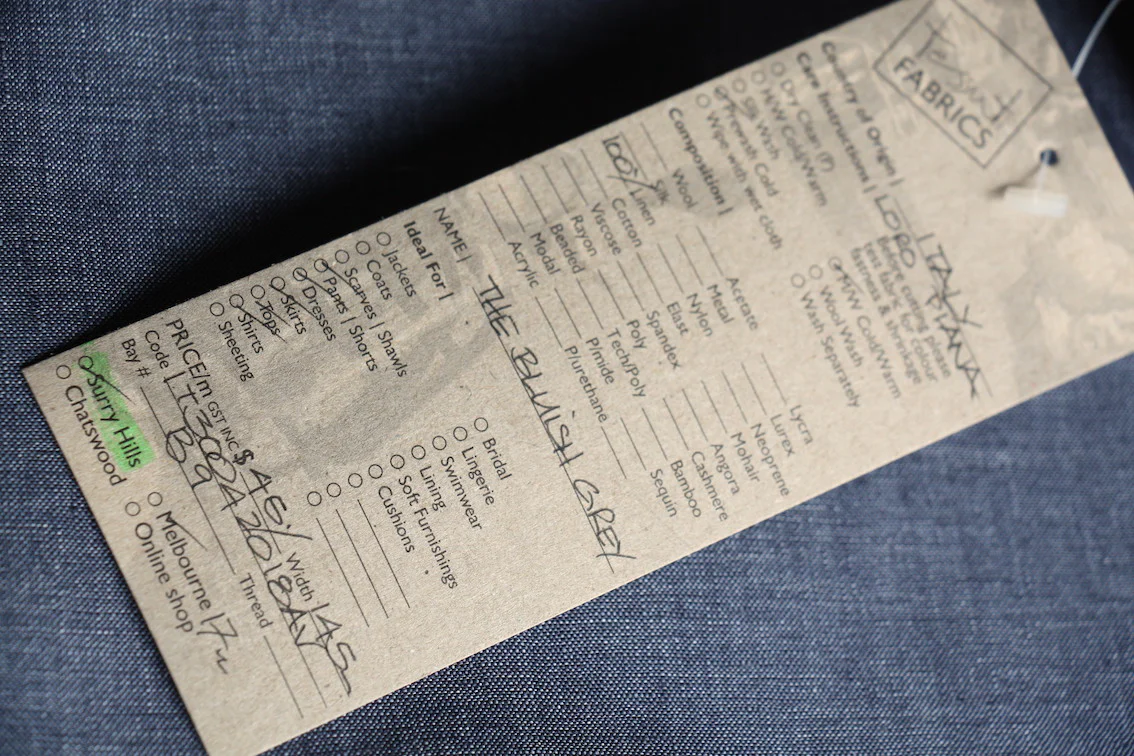 FABRICS
Country of Origin | ITALY
Care Instructions | LORO PIANA
Dry Clean (P)
H/W Cold/Warm
Silk Wash
Prewash Cold
Wipe with wet cloth
Before cutting please
test fabric for colour
fastness & shrinkage
M/W Cold/Warm
Wool Wash
Wash Separately
Composition |
Wool
Silk
100% Linen
Cotton
Viscose
Rayon
Beaded
Modal
Acrylic
Acetate
Metal
Nylon
Elast
Spandex
Poly
Tech/Poly
P/mide
P/urethane
Lycra
Lurex
Neoprene
Mohair
Angora
Cashmere
Bamboo
Sequin
NAME | THE BLUISH GREY
Ideal For |
Jackets
Coats
Scarves | Shawls
Pants | Shorts
Dresses
Skirts
Tops
Shirts
Sheeting
Bridal
Lingerie
Swimwear
Lining
Soft Furnishings
Cushions
PRICE/m GST INC $ 45/ Width 145
Code |
Bay # B9 Thread
Surry Hills
Chatswood
Melbourne | 7
Online shop